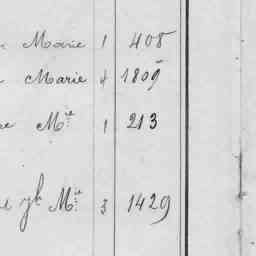 Marie 1 408
Marie 4 1809
Mie 1 213
Mie 3 1429